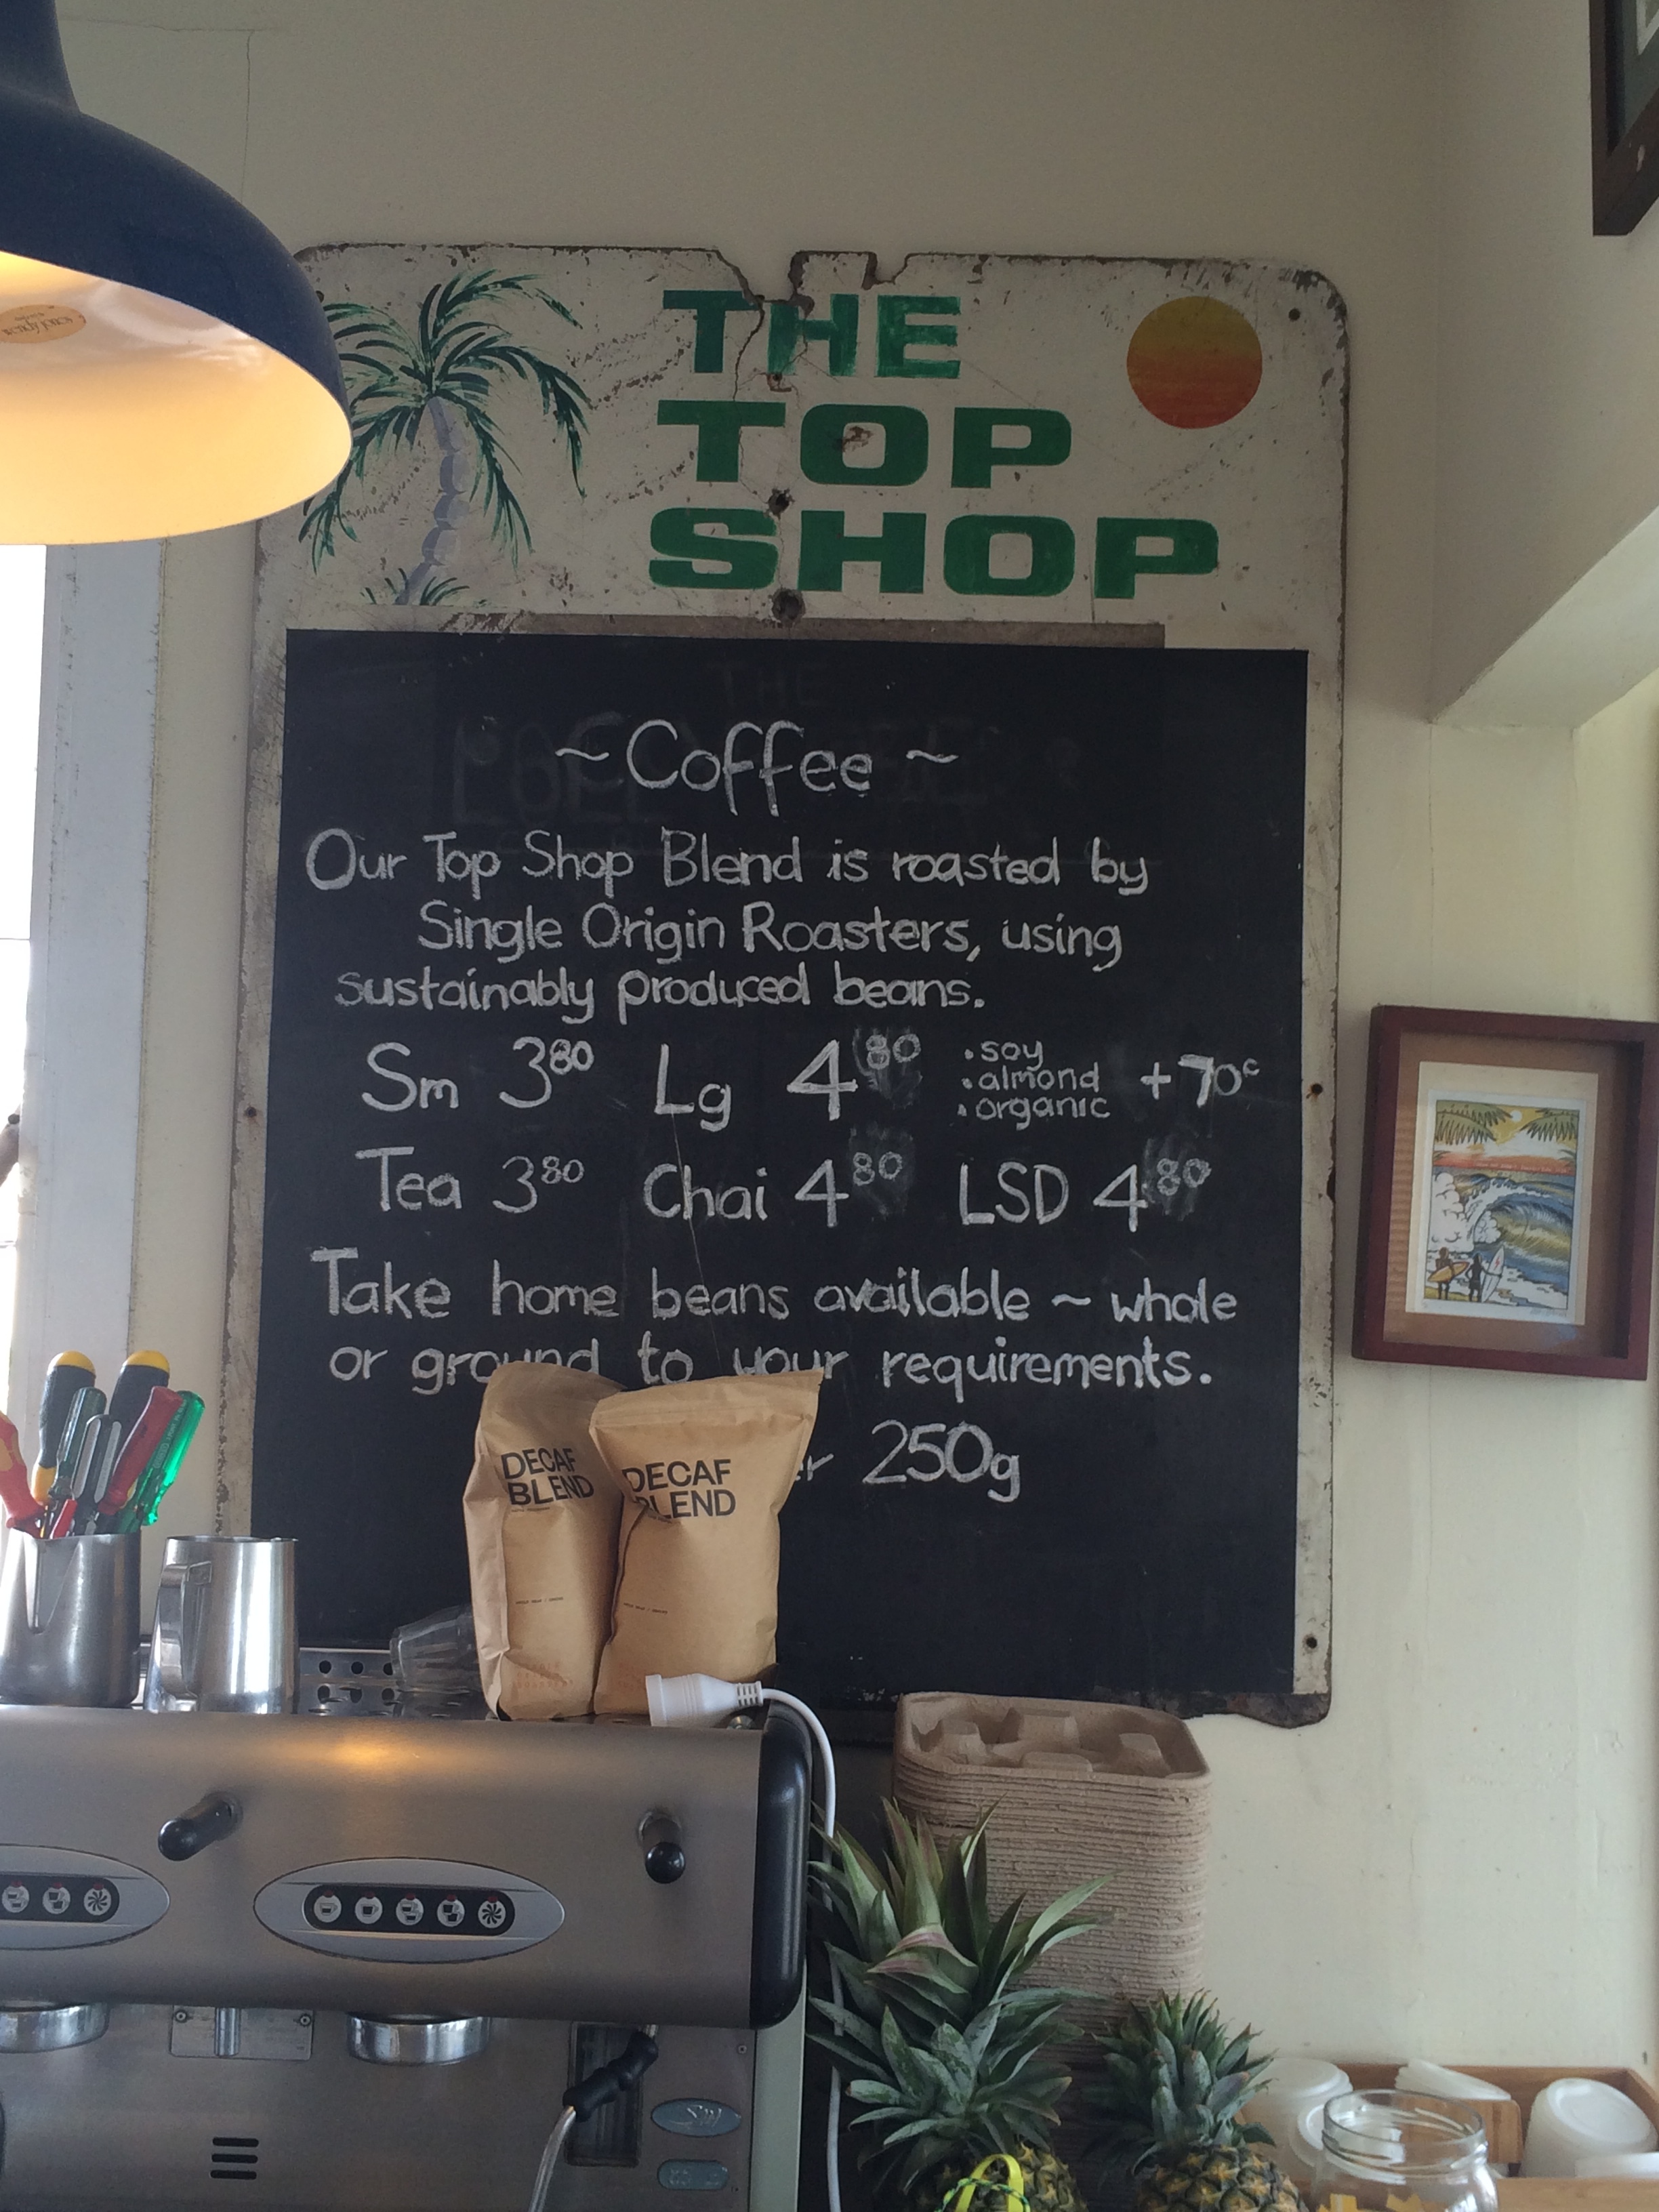 THE
TOP
SHOP
~ Coffee ~
Our Top Shop Blend is roasted by
Single Origin Roasters, using
sustainably produced beans.
Sm 3 80 Lg 4 80 • soy • almond • organic + 70c
Tea 3 80 Chai 4 80 LSD 4 80
Take home beans available ~ whole
or ground to your requirements.
250g
DECAF
BLEND
DECAF
BLEND